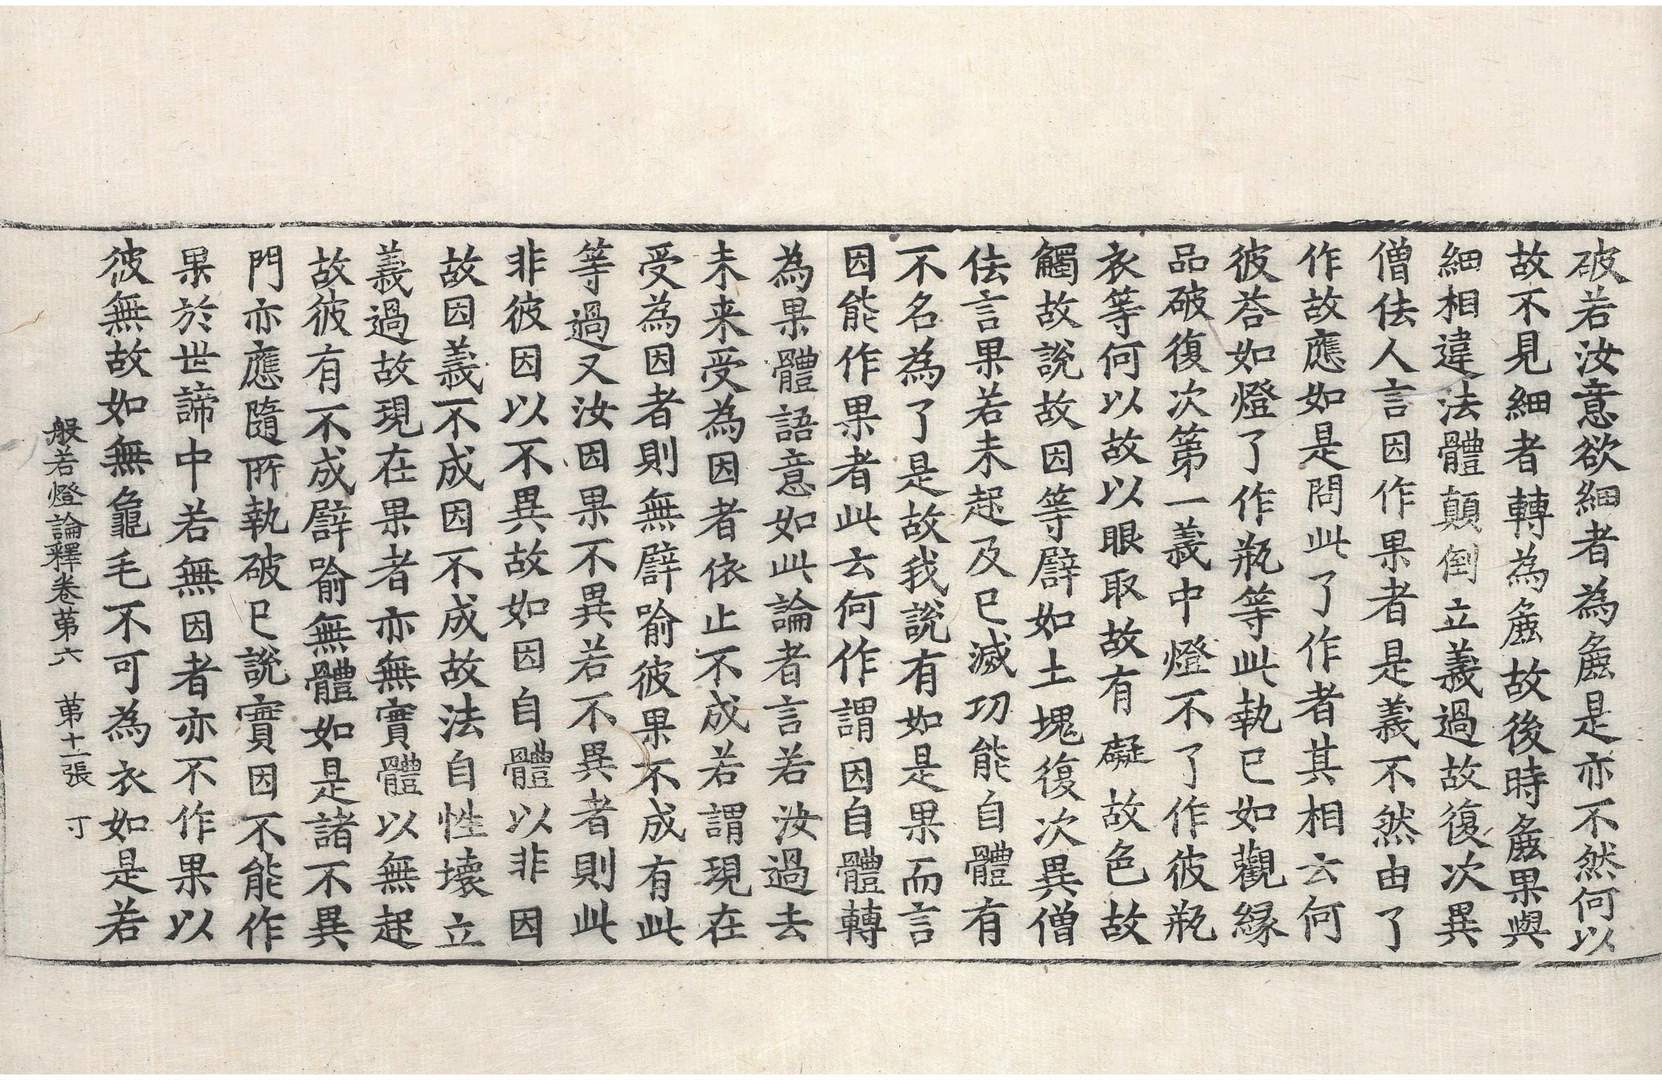 破若汝意欲細者為麁是亦不然何以
故不見細者轉為麁故後時麁果與
細相違法體顛倒立義過故復次異
僧佉人言因作果者是義不然由了
作故應如是問此了作者其相云何
彼荅如燈了作瓶等此執已如觀緣
品破復次第一義中燈不了作彼瓶
衣等何以故以眼取故有礙故色故
觸故說故因等譬如土塊復次異僧
佉言果若未起及已滅功能自體有
不名為了是故我說有如是果而言
因能作果者此云何作謂因自體轉
為果體語意如此論者言若汝過去
未来受為因者依止不成若謂現在
受為因者則無譬喻彼果不成有此
等過又汝因果不異若不異者則此
非彼因以不異故如因自體以非因
故因義不成因不成故法自性壞立
義過故現在果者亦無實體以無起
故彼有不成譬喻無體如是諸不異
門亦應隨所執破已說實因不能作
果於世諦中若無因者亦不作果以
彼無故如無龜毛不可為衣如是若
般若燈論釋卷苐六　苐十一張　丁